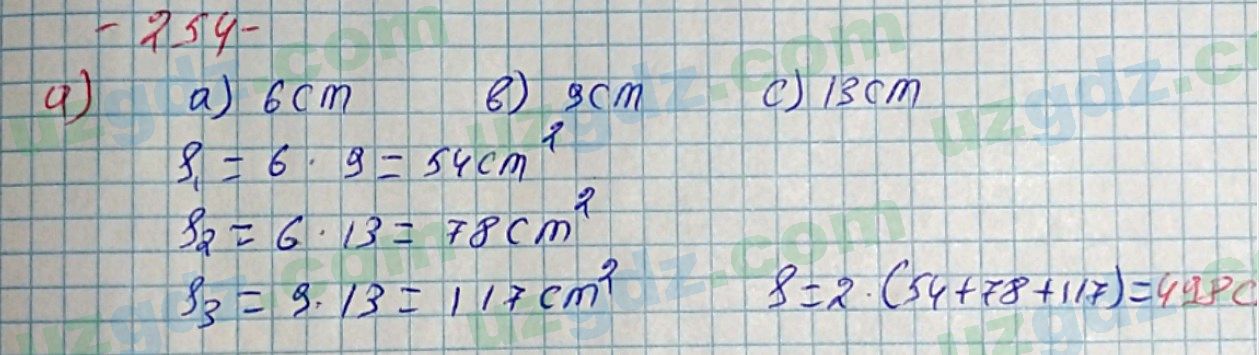 - 254 -
a) a) 6cm b) 9cm c) 13cm
S₁ = 6 · 9 = 54cm²
S₂ = 6 · 13 = 78cm²
S₃ = 9 · 13 = 117cm² S = 2 · (54+78+117) = 498c
uzgdz.com uzgdz.com uzgdz.com
uzgdz.com uzgdz.com uzgdz.com